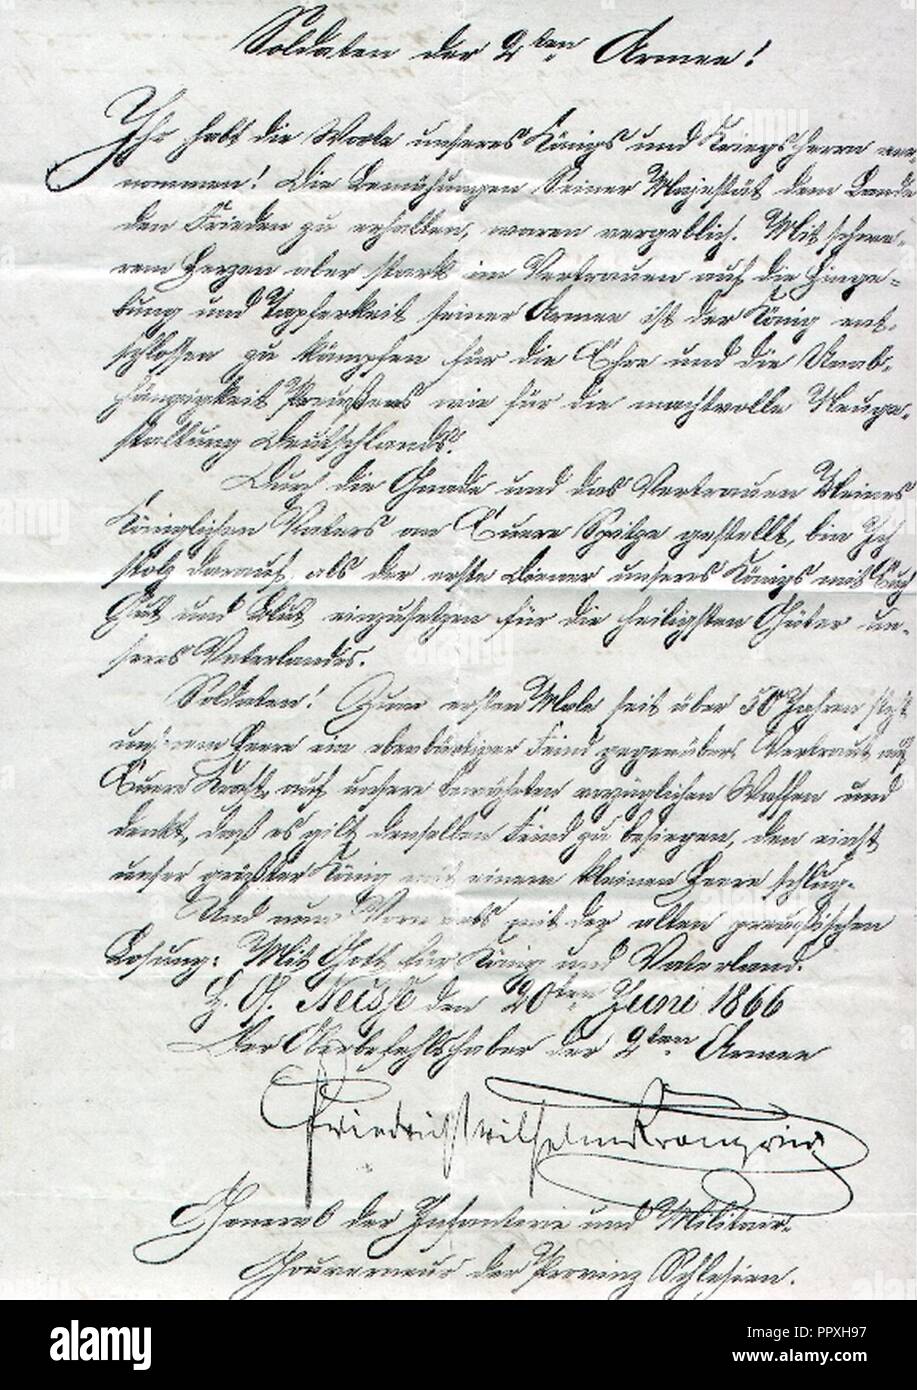 Soldaten der 2ten Armee!
Ihr habt die Worte unseres Königs und Kriegsherrn ver
nommen! Die Bemühungen Seiner Majestät dem Lande
den Frieden zu erhalten, waren vergeblich. Mit schwe-
rem Herzen aber stark im Vertrauen auf die Hinge-
bung und Tapferkeit seiner Armee ist der König ent-
schlossen zu kämpfen für die Ehre und die Unab-
hängigkeit Preußens wie für die machtvolle Neuge-
staltung Deutschlands.
Durch die Gnade und das Vertrauen Meines
Königlichen Vaters an Euere Spitze gestellt, bin Ich
stolz darauf, als der erste Diener unseres Königs mit Euch
Gut und Blut einzusetzen für die heiligsten Güter un-
seres Vaterlandes.
Soldaten! Zum ersten Male seit über 50 Jahren steht
unserem Heere ein ebenbürtiger Feind gegenüber. Vertraut auf
Euere Kraft, auf unsere bewährten vorzüglichen Waffen und
denkt, daß es gilt denselben Feind zu besiegen, den einst
unser größter König mit einem kleinen Heere schlug.
Und nun Vorwärts mit der alten preußischen
Losung: Mit Gott für König und Vaterland.
H. Q. Neisse den 20ten Juni 1866
Der Oberbefehlshaber der 2ten Armee
Friedrich Wilhelm Kronprinz
General der Infanterie und Militair-
Gouverneur der Provinz Schlesien.
alamy
Image ID: PPXH97
www.alamy.com